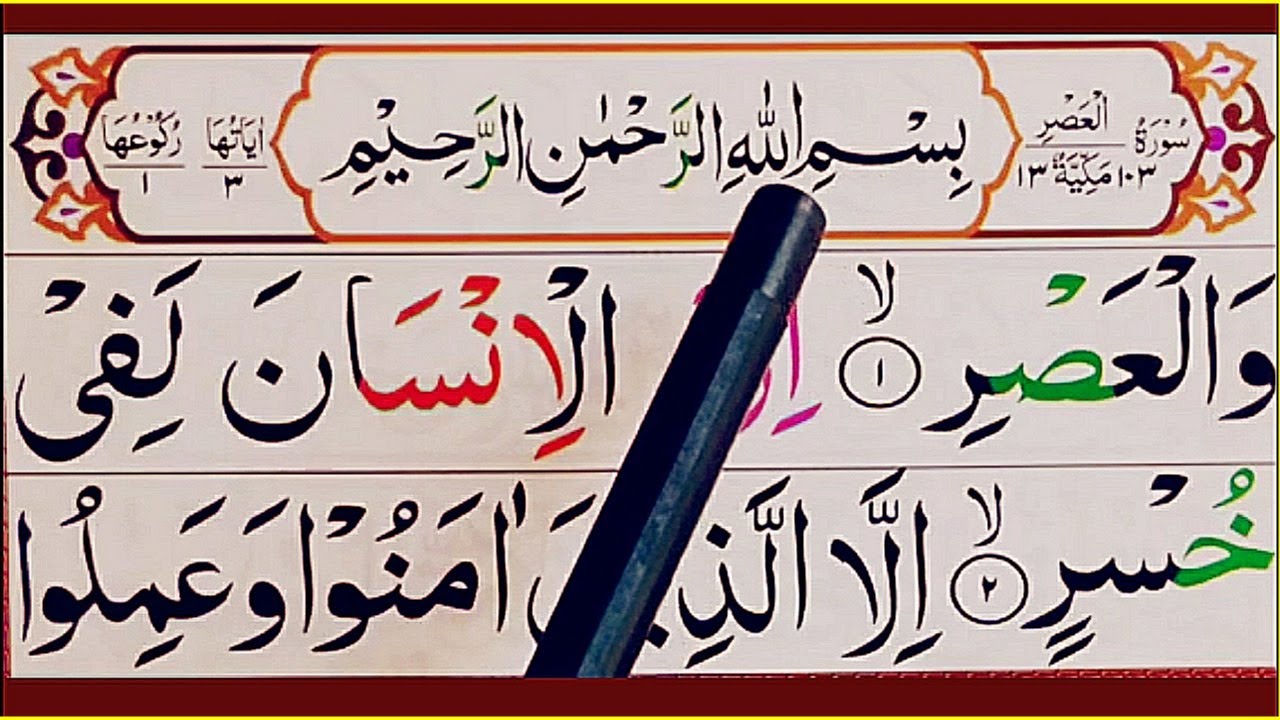 سُوْرَةُ الْعَصْرِ ١٠٣ مَكِّيَّةٌ ١٣
بِسْمِ اللّٰهِ الرَّحْمٰنِ الرَّحِيْمِ
اٰيَاتُهَا ٣ رُكُوْعُهَا ١
وَالْعَصْرِ ۙ ١ الْاِنْسَانَ لَفِیْ
خُسْرٍ ۙ ٢ اِلَّا الَّذِيْنَ اٰمَنُوْا وَعَمِلُوا